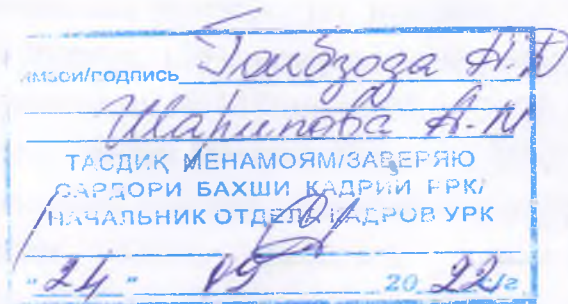 имзои/подпись Гоибзода А.Д
Шарипова А.М
ТАСДИҚ МЕНАМОЯМ/ЗАВЕРЯЮ
САРДОРИ БАХШИ КАДРИИ РРК/
НАЧАЛЬНИК ОТДЕЛА КАДРОВ УРК
"24" 09 2022г